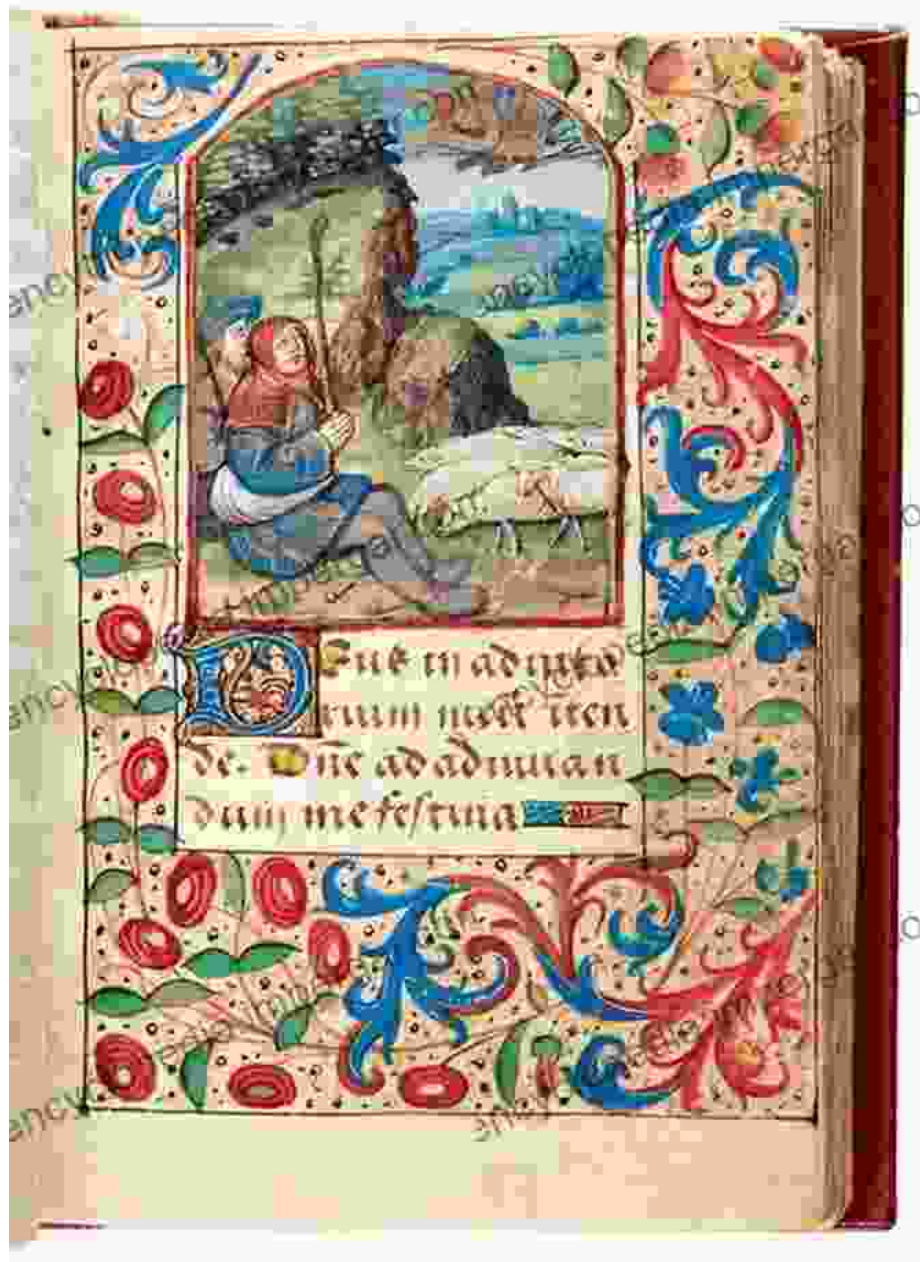 Deus in adiuto
rium meum inten
de. Dn̄e ad adiuuan
dum me festina